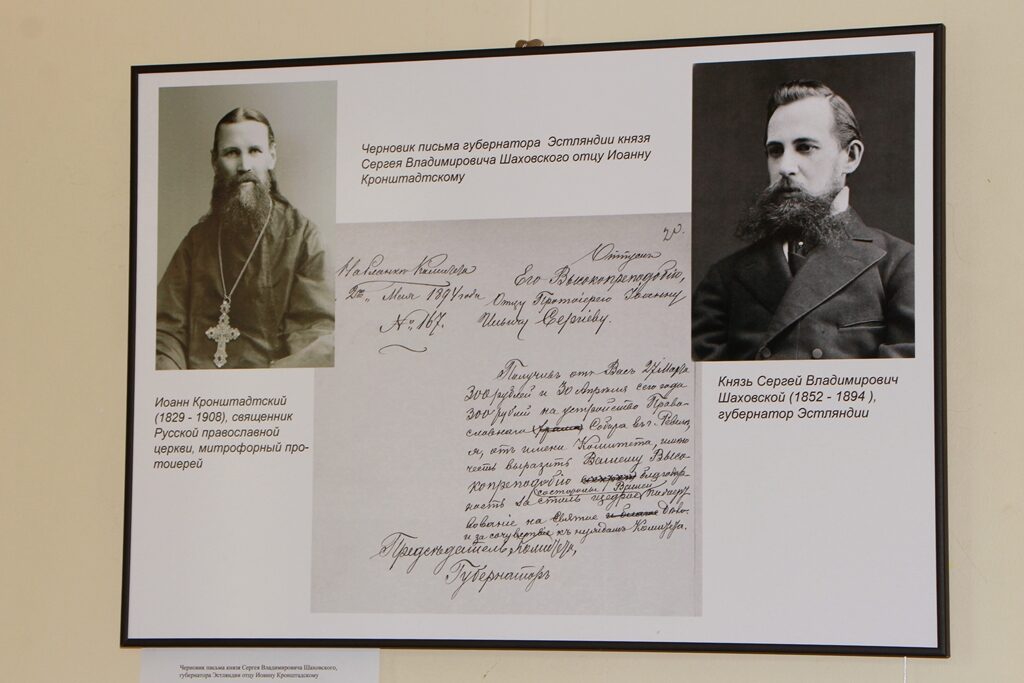 Черновик письма губернатора Эстляндии князя
Сергея Владимировича Шаховского отцу Иоанну
Кронштадтскому
На бланке Комитета
2го Мая 1894 года
№ 167.
Отпускъ
Его Высокопреподобію,
Отцу Протоіерею Іоанну
Ильичу Сергіеву.
Получивъ отъ Васъ 27 Марта
300 рублей и 30 Апрѣля сего года
300 рублей на устройство Право-
славнаго Собора въ г. Ревелѣ
я, отъ имени Комитета, имѣю
честь выразить Вашему Высо-
копреподобію благодар-
ность за столь щедрое
пожертвованіе на Святое дѣло
и за сочувствіе къ нуждамъ Комитета.
Предсѣдатель Комитета,
Губернаторъ
Иоанн Кронштадтский
(1829 - 1908), священник
Русской православной
церкви, митрофорный про-
тоиерей
Князь Сергей Владимирович
Шаховской (1852 - 1894 ),
губернатор Эстляндии
Черновик письма князя Сергея Владимировича Шаховского,
губернатора Эстляндии отцу Иоанну Кронштадскому